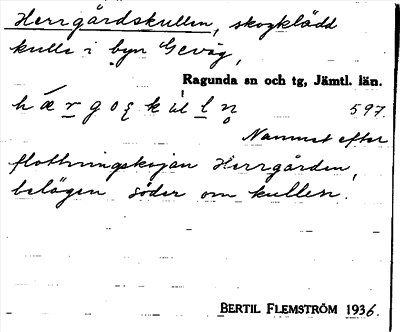 Herrgårdskullen, skogklädd
kulle i byn Gevåg,
Ragunda sn och tg, Jämtl. län.
597.
Namnet efter
flottningskojan Herrgården,
belägen söder om kullen.
BERTIL FLEMSTRÖM 1936.